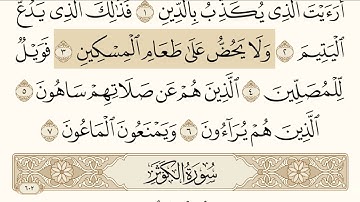 أَرَءَيْتَ ٱلَّذِى يُكَذِّبُ بِٱلدِّينِ ١ فَذَٰلِكَ ٱلَّذِى يَدُعُّ
ٱلْيَتِيمَ ٢ وَلَا يَحُضُّ عَلَىٰ طَعَامِ ٱلْمِسْكِينِ ٣ فَوَيْلٌ
لِّلْمُصَلِّينَ ٤ ٱلَّذِينَ هُمْ عَن صَلَاتِهِمْ سَاهُونَ ٥
ٱلَّذِينَ هُمْ يُرَآءُونَ ٦ وَيَمْنَعُونَ ٱلْمَاعُونَ ٧
سُورَةُ الكَوْثَرِ
٦٠٢